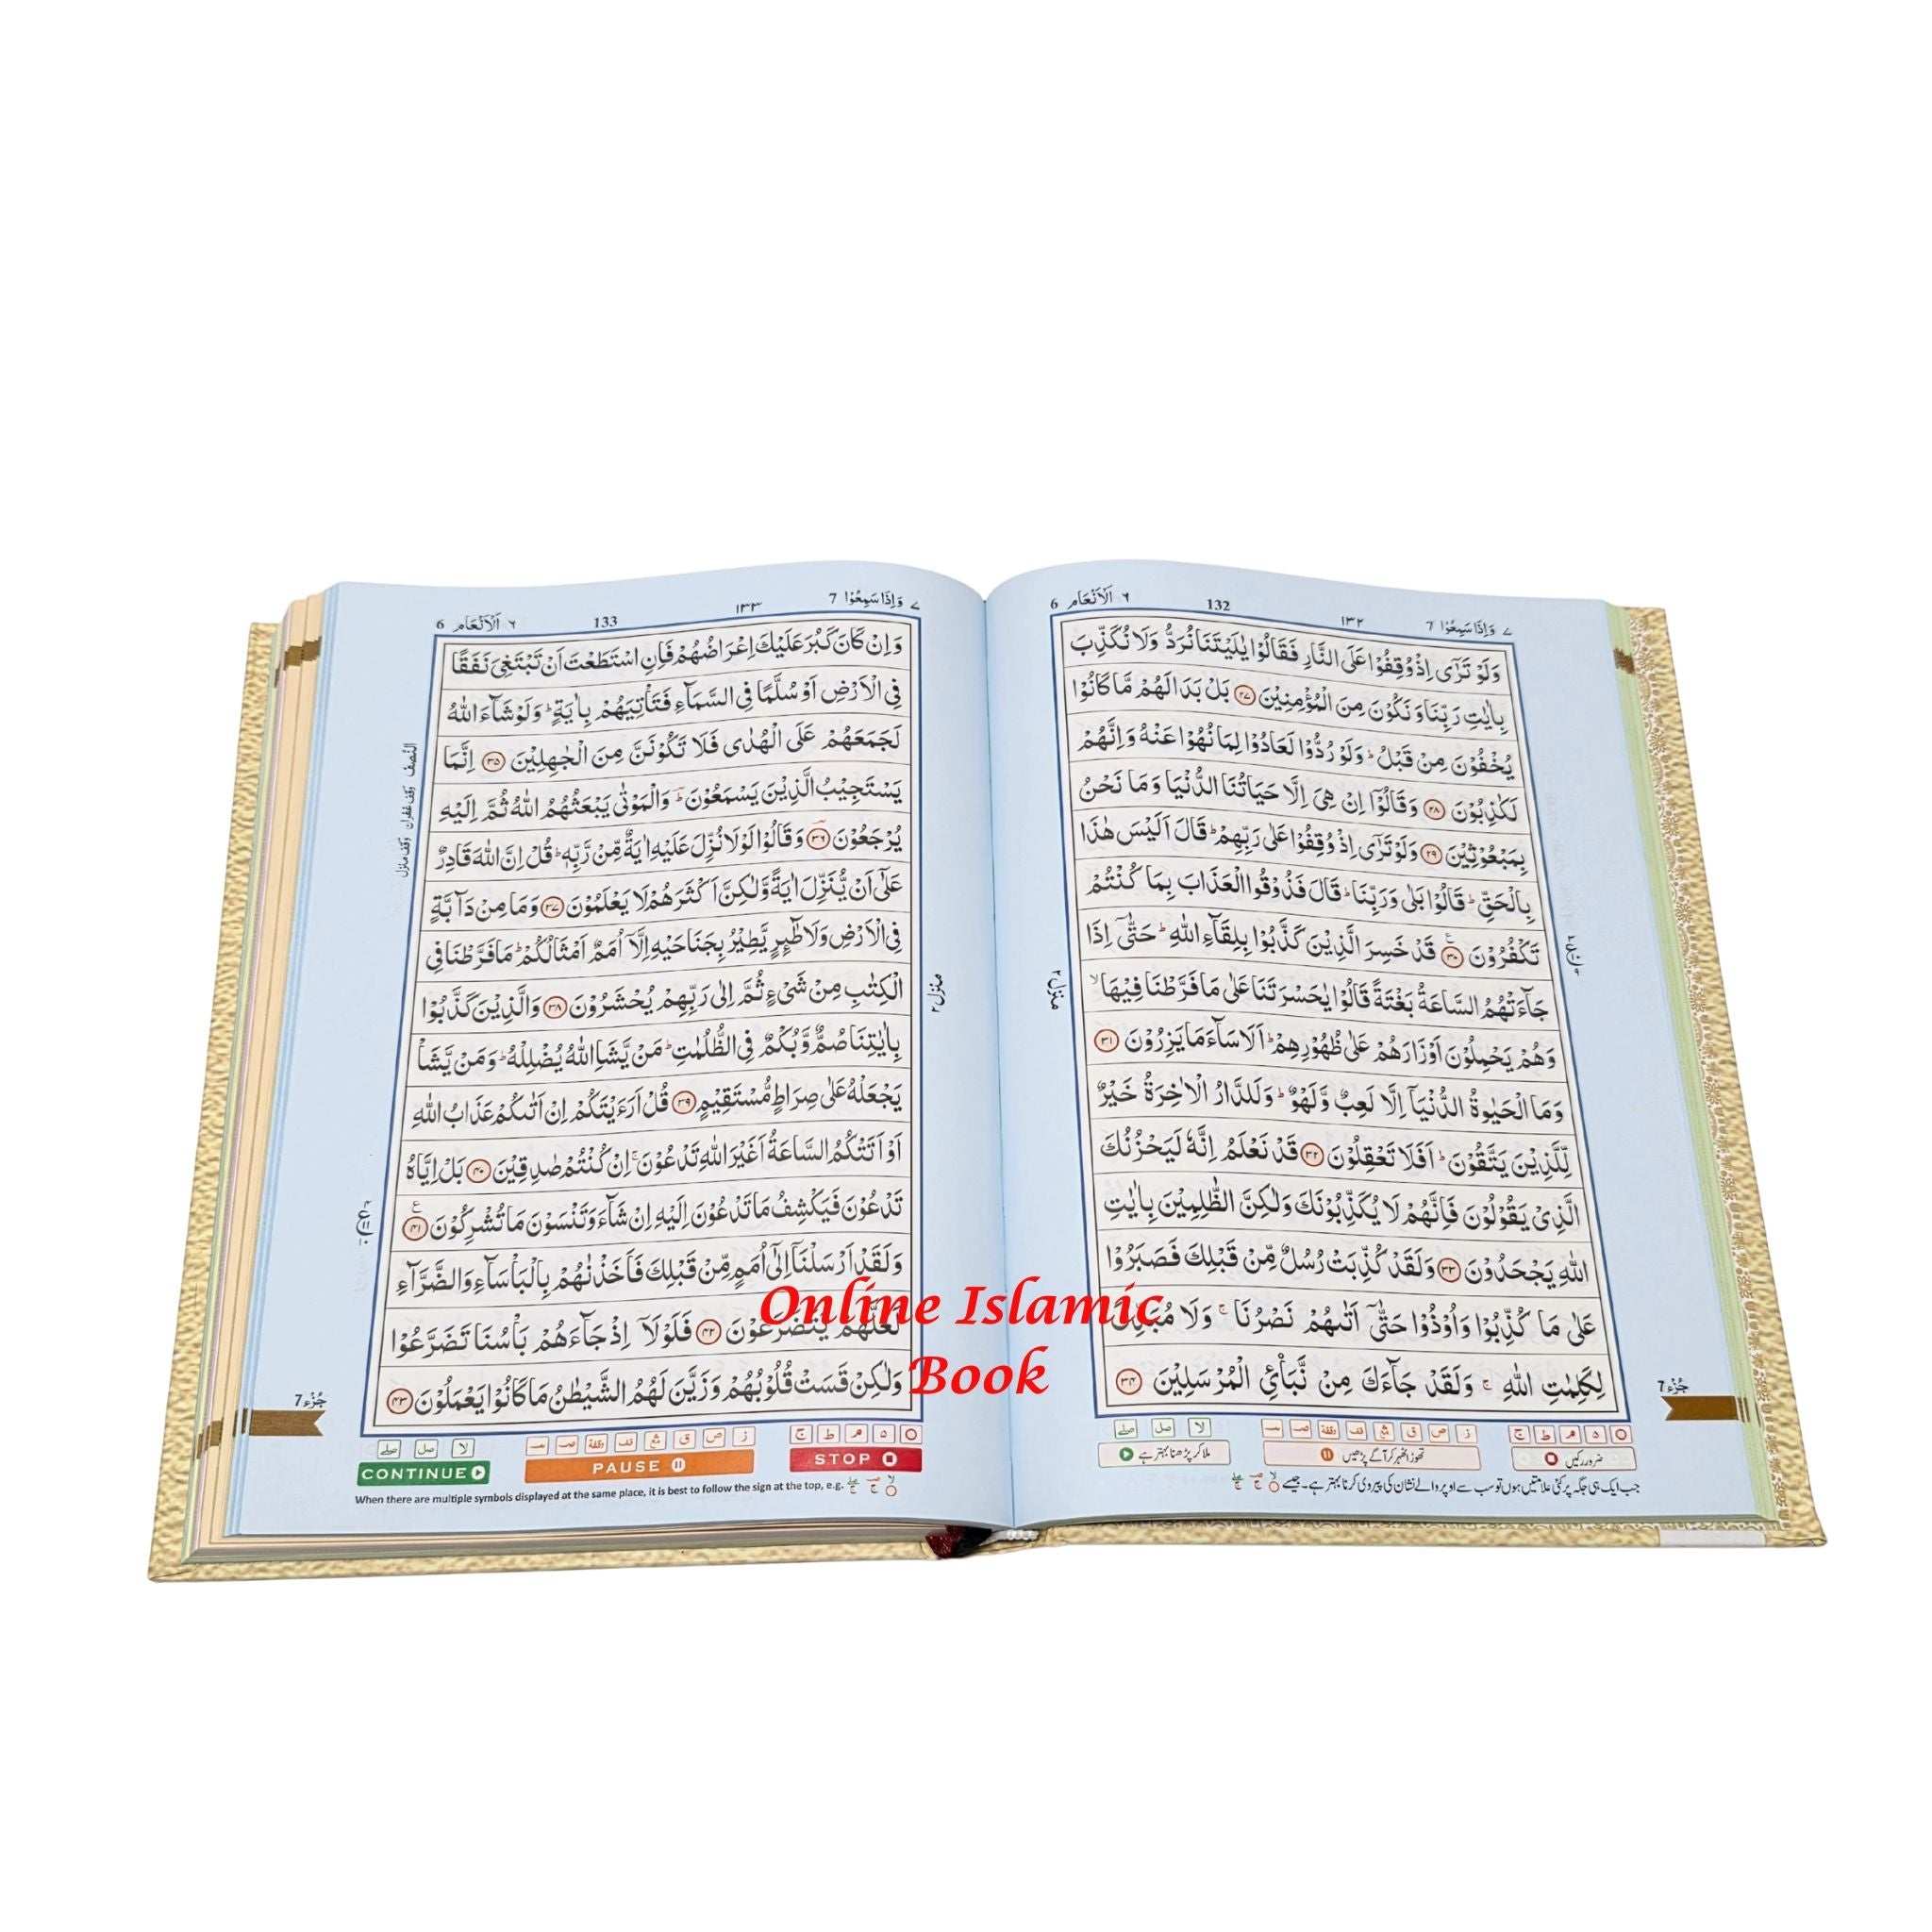 ٧ وَاِذَا سَمِعُوْا 7
١٣٢
132
٦ اَلْاَنْعَام 6
وَلَوْ تَرٰٓى اِذْ وُقِفُوْا عَلَى النَّارِ فَقَالُوْا يٰلَيْتَنَا نُرَدُّ وَلَا نُكَذِّبَ
بِاٰيٰتِ رَبِّنَا وَنَكُوْنَ مِنَ الْمُؤْمِنِيْنَ ﴿٢٧﴾ بَلْ بَدَا لَهُمْ مَّا كَانُوْا
يُخْفُوْنَ مِنْ قَبْلُ ؕ وَلَوْ رُدُّوْا لَعَادُوْا لِمَا نُهُوْا عَنْهُ وَاِنَّهُمْ
لَكٰذِبُوْنَ ﴿٢٨﴾ وَقَالُوْٓا اِنْ هِىَ اِلَّا حَيَاتُنَا الدُّنْيَا وَمَا نَحْنُ
بِمَبْعُوْثِيْنَ ﴿٢٩﴾ وَلَوْ تَرٰٓى اِذْ وُقِفُوْا عَلٰى رَبِّهِمْ ؕ قَالَ اَلَيْسَ هٰذَا
بِالْحَقِّ ؕ قَالُوْا بَلٰى وَرَبِّنَا ؕ قَالَ فَذُوْقُوا الْعَذَابَ بِمَا كُنْتُمْ
تَكْفُرُوْنَ ﴿٣٠﴾ قَدْ خَسِرَ الَّذِيْنَ كَذَّبُوْا بِلِقَآءِ اللّٰهِ ؕ حَتّٰٓى اِذَا
جَآءَتْهُمُ السَّاعَةُ بَغْتَةً قَالُوْا يٰحَسْرَتَنَا عَلٰى مَا فَرَّطْنَا فِيْهَا ۙ
وَهُمْ يَحْمِلُوْنَ اَوْزَارَهُمْ عَلٰى ظُهُوْرِهِمْ ؕ اَلَا سَآءَ مَا يَزِرُوْنَ ﴿٣١﴾
وَمَا الْحَيٰوةُ الدُّنْيَآ اِلَّا لَعِبٌ وَّلَهْوٌ ؕ وَلَلدَّارُ الْاٰخِرَةُ خَيْرٌ
لِّلَّذِيْنَ يَتَّقُوْنَ ؕ اَفَلَا تَعْقِلُوْنَ ﴿٣٢﴾ قَدْ نَعْلَمُ اِنَّهٗ لَيَحْزُنُكَ
الَّذِىْ يَقُوْلُوْنَ فَاِنَّهُمْ لَا يُكَذِّبُوْنَكَ وَلٰكِنَّ الظّٰلِمِيْنَ بِاٰيٰتِ
اللّٰهِ يَجْحَدُوْنَ ﴿٣٣﴾ وَلَقَدْ كُذِّبَتْ رُسُلٌ مِّنْ قَبْلِكَ فَصَبَرُوْا
عَلٰى مَا كُذِّبُوْا وَاُوْذُوْا حَتّٰٓى اَتٰىهُمْ نَصْرُنَا ۚ وَلَا مُبَدِّلَ
لِكَلِمٰتِ اللّٰهِ ۚ وَلَقَدْ جَآءَكَ مِنْ نَّبَاِى الْمُرْسَلِيْنَ ﴿٣٤﴾
منزل ٢
جُزء 7
ضرور رکیں
تھوڑا ٹھہر کر آگے پڑھیں
ملا کر پڑھنا بہتر ہے
جب ایک ہی جگہ پر کئی علامتیں ہوں تو سب سے اوپر والے نشان کی پیروی کرنا بہتر ہے۔ جیسے
٧ وَاِذَا سَمِعُوْا 7
١٣٣
133
٦ اَلْاَنْعَام 6
وَاِنْ كَانَ كَبُرَ عَلَيْكَ اِعْرَاضُهُمْ فَاِنِ اسْتَطَعْتَ اَنْ تَبْتَغِىَ نَفَقًا
فِى الْاَرْضِ اَوْ سُلَّمًا فِى السَّمَآءِ فَتَاْتِيَهُمْ بِاٰيَةٍ ؕ وَلَوْ شَآءَ اللّٰهُ
لَجَمَعَهُمْ عَلَى الْهُدٰى فَلَا تَكُوْنَنَّ مِنَ الْجٰهِلِيْنَ ﴿٣٥﴾ اِنَّمَا
يَسْتَجِيْبُ الَّذِيْنَ يَسْمَعُوْنَ ؕ وَالْمَوْتٰى يَبْعَثُهُمُ اللّٰهُ ثُمَّ اِلَيْهِ
يُرْجَعُوْنَ ﴿٣٦﴾ وَقَالُوْا لَوْلَا نُزِّلَ عَلَيْهِ اٰيَةٌ مِّنْ رَّبِّهٖ ؕ قُلْ اِنَّ اللّٰهَ قَادِرٌ
عَلٰٓى اَنْ يُّنَزِّلَ اٰيَةً وَّلٰكِنَّ اَكْثَرَهُمْ لَا يَعْلَمُوْنَ ﴿٣٧﴾ وَمَا مِنْ دَآبَّةٍ
فِى الْاَرْضِ وَلَا طٰٓئِرٍ يَّطِيْرُ بِجَنَاحَيْهِ اِلَّآ اُمَمٌ اَمْثَالُكُمْ ؕ مَا فَرَّطْنَا فِى
الْكِتٰبِ مِنْ شَىْءٍ ثُمَّ اِلٰى رَبِّهِمْ يُحْشَرُوْنَ ﴿٣٨﴾ وَالَّذِيْنَ كَذَّبُوْا
بِاٰيٰتِنَا صُمٌّ وَّبُكْمٌ فِى الظُّلُمٰتِ ؕ مَنْ يَّشَاِ اللّٰهُ يُضْلِلْهُ ؕ وَمَنْ يَّشَاْ
يَجْعَلْهُ عَلٰى صِرَاطٍ مُّسْتَقِيْمٍ ﴿٣٩﴾ قُلْ اَرَءَيْتَكُمْ اِنْ اَتٰىكُمْ عَذَابُ اللّٰهِ
اَوْ اَتَتْكُمُ السَّاعَةُ اَغَيْرَ اللّٰهِ تَدْعُوْنَ ۚ اِنْ كُنْتُمْ صٰدِقِيْنَ ﴿٤٠﴾ بَلْ اِيَّاهُ
تَدْعُوْنَ فَيَكْشِفُ مَا تَدْعُوْنَ اِلَيْهِ اِنْ شَآءَ وَتَنْسَوْنَ مَا تُشْرِكُوْنَ ﴿٤١﴾
وَلَقَدْ اَرْسَلْنَآ اِلٰٓى اُمَمٍ مِّنْ قَبْلِكَ فَاَخَذْنٰهُمْ بِالْبَاْسَآءِ وَالضَّرَّآءِ
لَعَلَّهُمْ يَتَضَرَّعُوْنَ ﴿٤٢﴾ فَلَوْلَآ اِذْ جَآءَهُمْ بَاْسُنَا تَضَرَّعُوْا
وَلٰكِنْ قَسَتْ قُلُوْبُهُمْ وَزَيَّنَ لَهُمُ الشَّيْطٰنُ مَا كَانُوْا يَعْمَلُوْنَ ﴿٤٣﴾
منزل ٢
النصف وقف غفران وقف منزل
جُزء 7
CONTINUE
PAUSE
STOP
When there are multiple symbols displayed at the same place, it is best to follow the sign at the top, e.g.
Online Islamic
Book